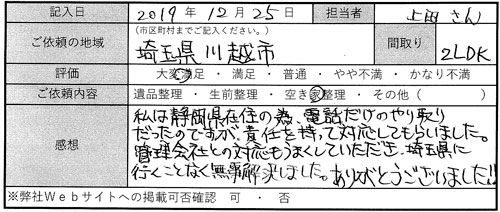 記入日 2019年12月25日 担当者 上田さん
(市区町村までご記入ください。)
ご依頼の地域 埼玉県川越市 間取り 2LDK
評価 大変満足 ・ 満足 ・ 普通 ・ やや不満 ・ かなり不満
ご依頼内容 遺品整理 ・ 生前整理 ・ 空き家整理 ・ その他 ( )
感想
私は静岡県在住の為、電話だけのやり取り
だったのですが、責任を持って対応してもらいました。
管理会社との対応もうまくしていただき、埼玉県に
行くことなく無事解決しました。ありがとうございました!!
※弊社Webサイトへの掲載可否確認 可 ・ 否